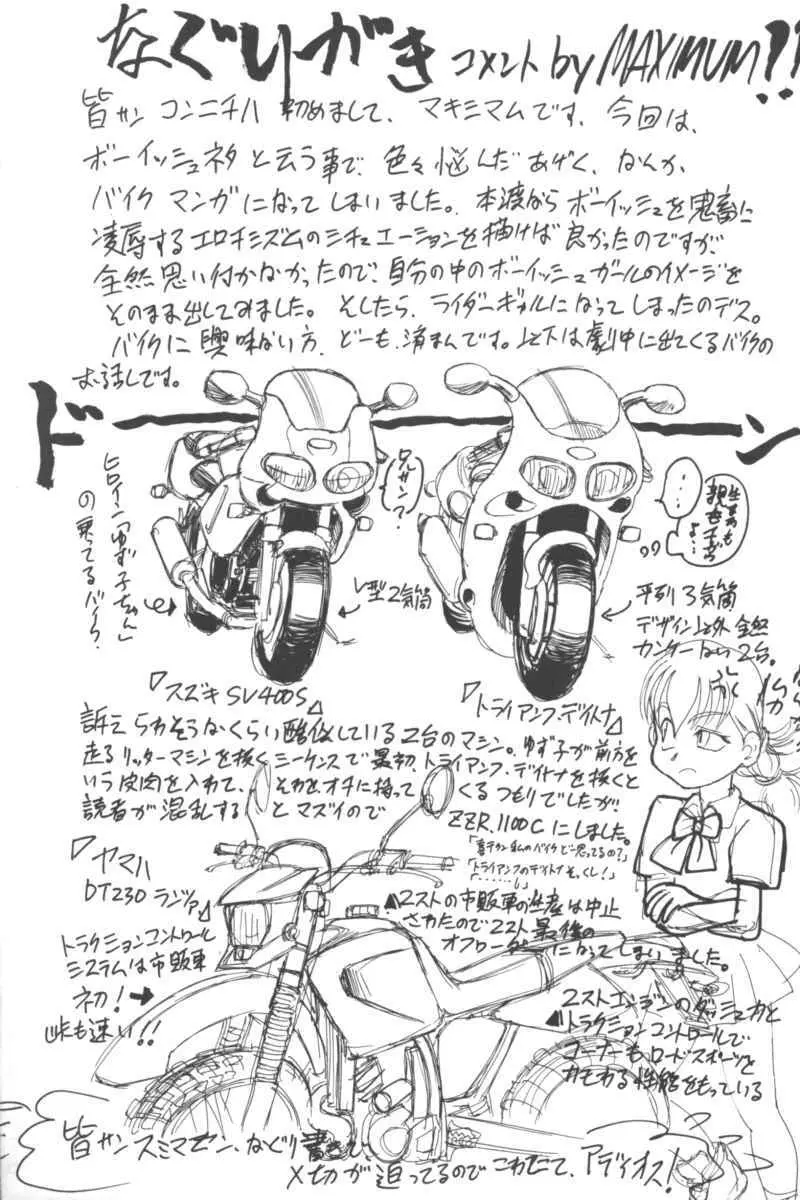 なぐりがき コメント by MAXIMUM!!
皆サン コンニチハ 初めまして、マキシマムです、今回は、
ボーイッシュネタと云う事で、色々悩んだあげく、なんか、
バイクマンガになってしまいました。本渡ならボーイッシュを鬼畜に
凌辱するエロチシズムのシチュエーションを描けば良かったのですが、
全然思い付かなかったので、自分の中のボーイッシュガールのイメージを
そのまま出してみました。そしたら、ライダーギャルになってしまったのデス。
バイクに興味ない方、どーも、済まんです。以下は劇中に出てくるバイクの
お話しです。
ドーーン
ヒロイン「ゆず子ちゃん」
の乗ってるバイク。
兄サン?
・・・
生き別れ
V型2気筒
平列3気筒
デザイン以外全然
カンケーない2台。
スズキSV400S
トライアンフ・デイトナ
訴えられそうなくらい酷似している2台のマシン。ゆず子が前方を
走るリッターマシンを抜くシーケンスで最初、トライアンフ・デイトナを抜くと
いう皮肉を入れて、それをオチに持ってくるつもりでしたが、
読者が混乱するとマズイので
ZZR1100Cにしました。
「トライアンフのデイトナそっくし!」
「・・・・・・」
ヤマハ
DT230ランツァ
2ストの市販車の生産は中止
されたので2スト最後の
オフローダーになってしまいました。
トラクションコントロール
システムは市販車
初!
峠も速い!!
2ストエンジンのダッシュ力と
トラクションコントロールで
コーナーも、ロードスポーツを
カモれる性能をもっている
皆サンスミマセン、なぐり書きで、
〆切が迫ってるのでこれにて、アディオス!